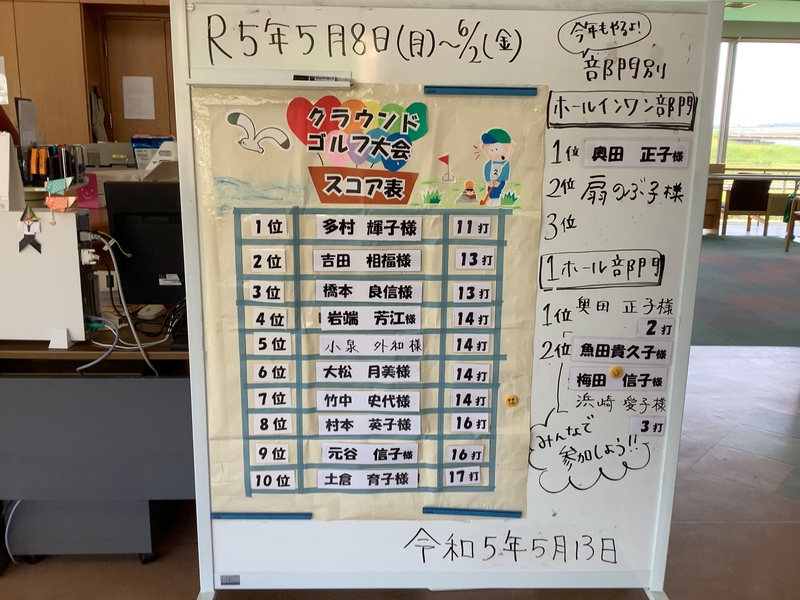 R5年5月8日(月)～6/2(金)
今年もやるよ!
部門別
グラウンド
ゴルフ大会
スコア表
1位 多村 輝子様 11打
2位 吉田 相福様 13打
3位 橋本 良信様 13打
4位 岩端 芳江様 14打
5位 小泉 外和様 14打
6位 大松 月美様 14打
7位 竹中 史代様 14打
8位 村本 英子様 16打
9位 元谷 信子様 16打
10位 土倉 育子様 17打
ホールインワン部門
1位 奥田 正子様
2位 扇のぶ子様
3位
1ホール部門
1位 奥田 正子様
2打
2位 魚田貴久子様
梅田 信子様
浜崎 愛子様
3打
みんなで
参加しよう!!
令和5年5月13日